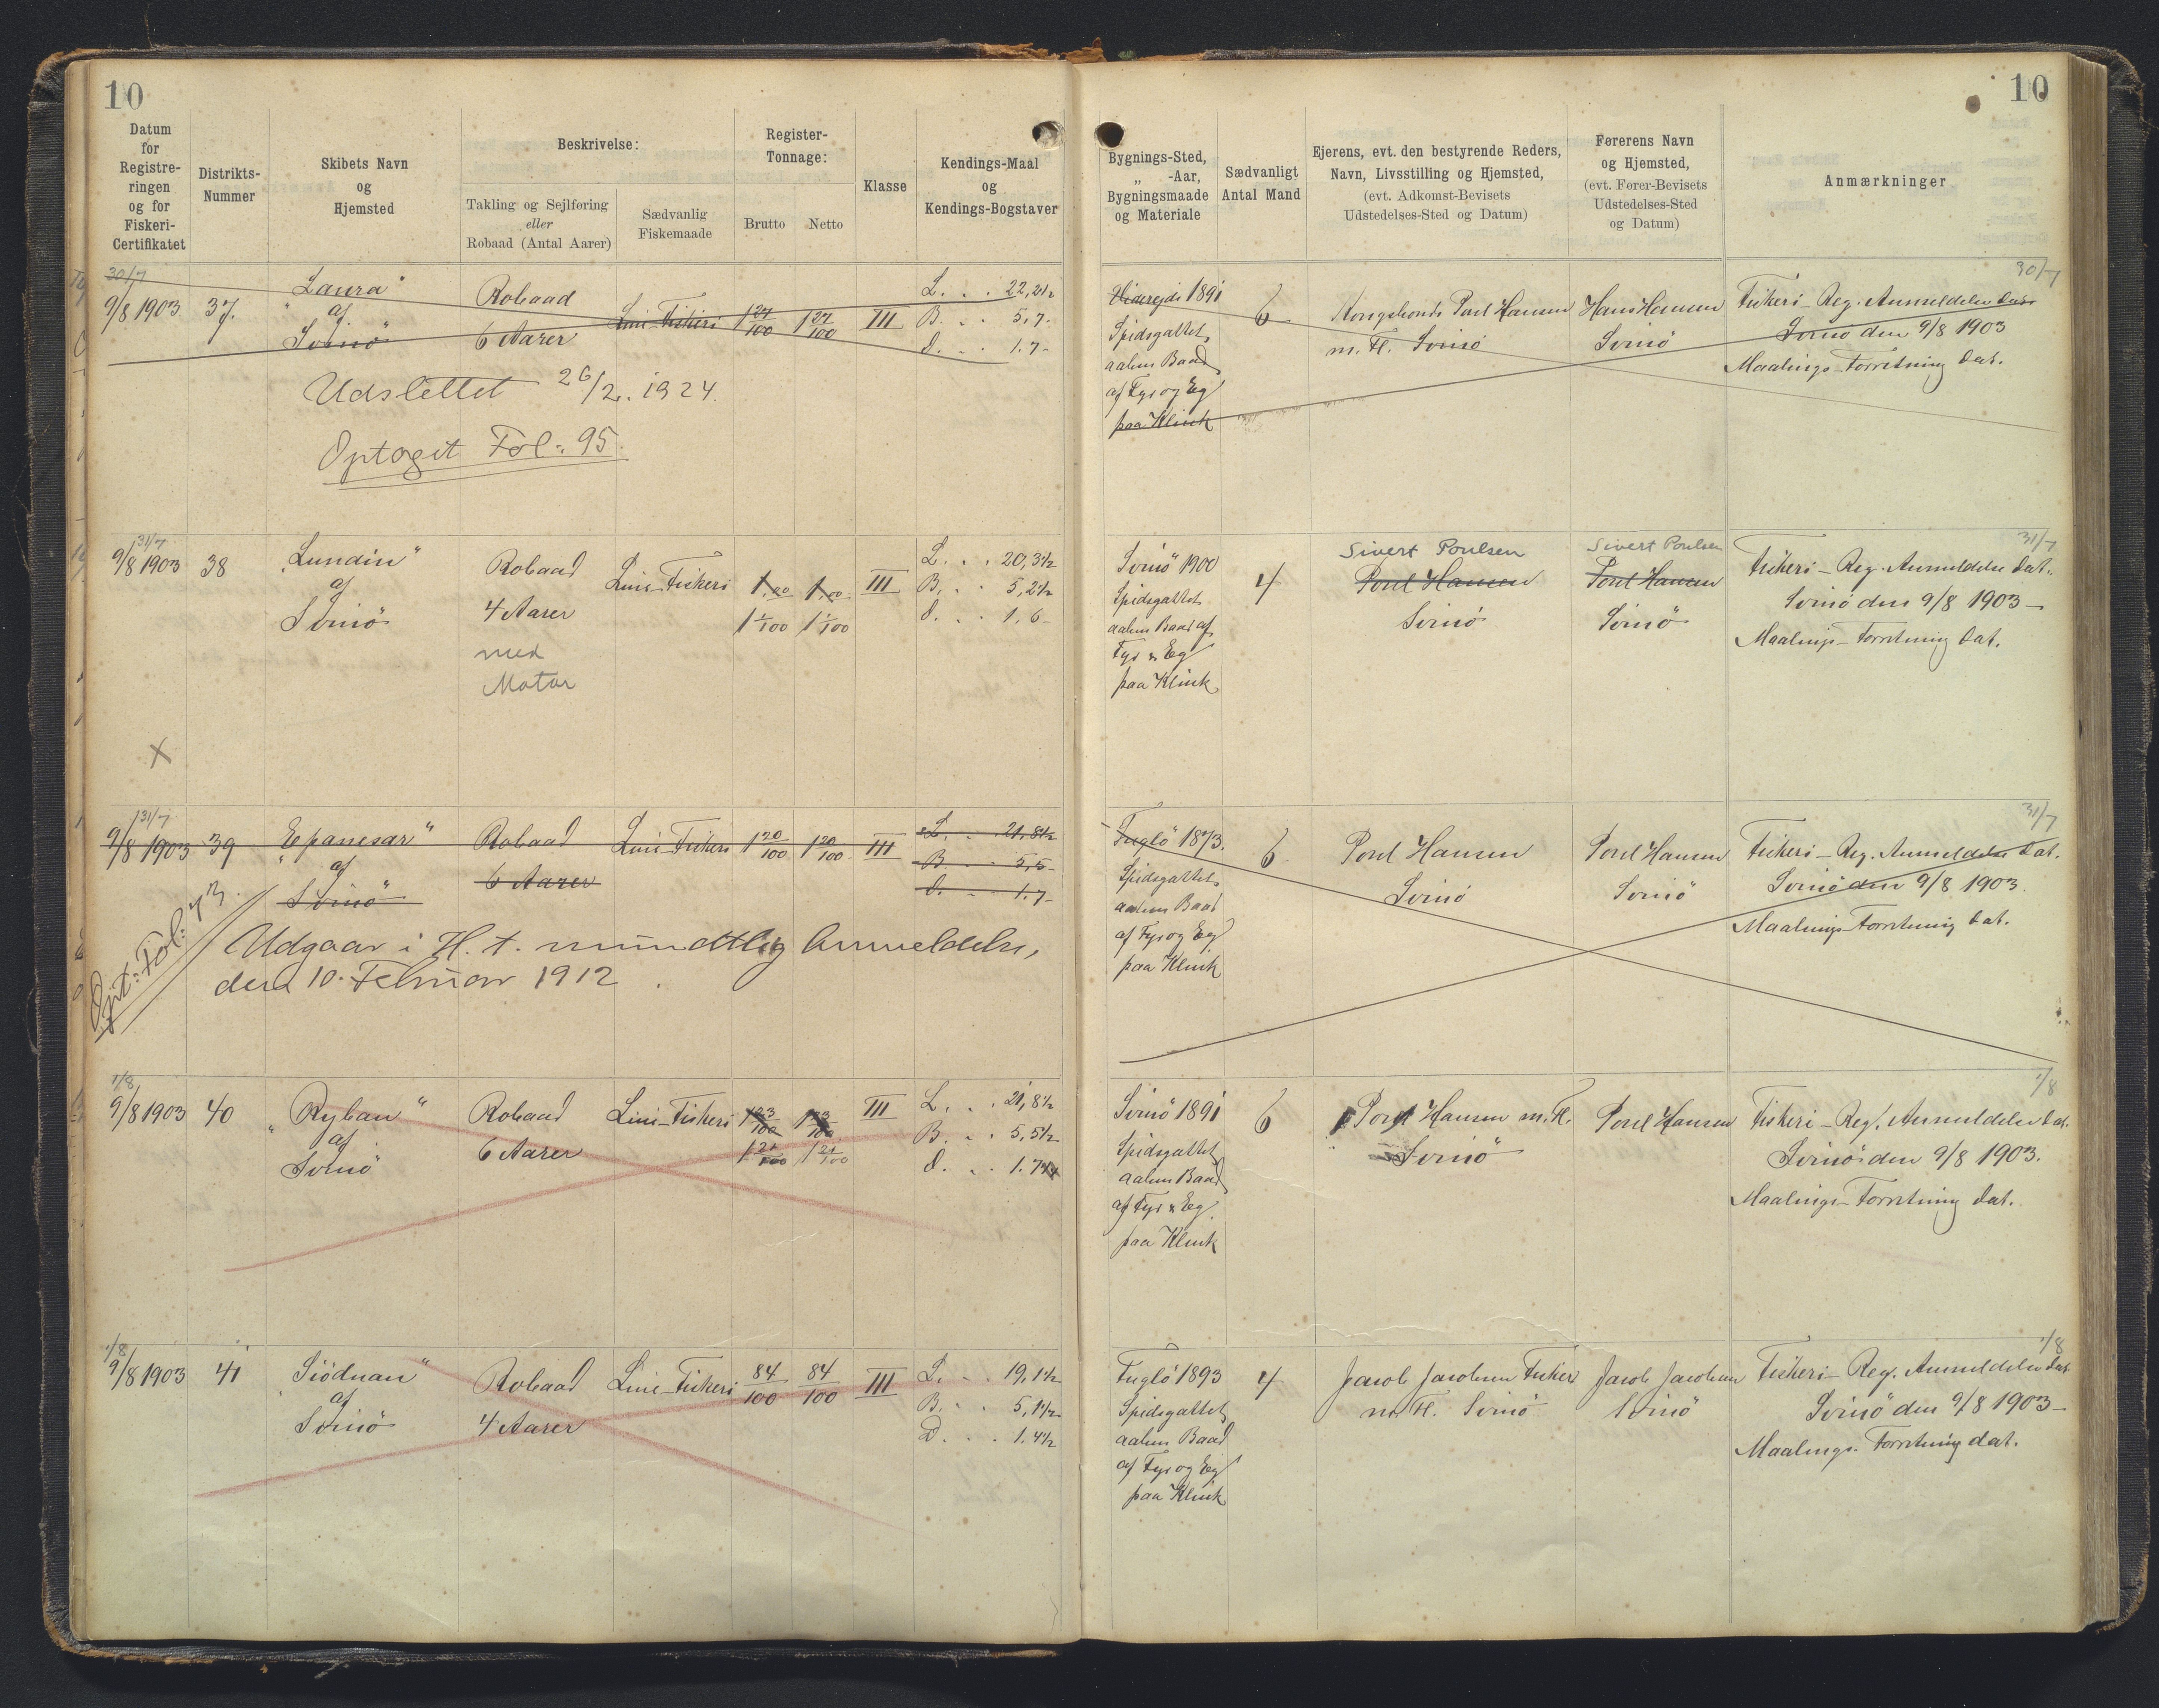 10
10
Datum
for
Registre-
ringen
og for
Fiskeri-
Certifikatet
Distrikts-
Nummer
Skibets Navn
og
Hjemsted
Beskrivelse:
Takling og Sejlføring
eller
Robaad (Antal Aarer)
Sædvanlig
Fiskemaade
Register-
Tonnage:
Brutto
Netto
Klasse
Kendings-Maal
og
Kendings-Bogstaver
Bygnings-Sted,
„ -Aar,
Bygningsmaade
og Materiale
Sædvanligt
Antal Mand
Ejerens, evt. den bestyrende Reders,
Navn, Livsstilling og Hjemsted,
(evt. Adkomst-Bevisets
Udstedelses-Sted og Datum)
Førerens Navn
og Hjemsted,
(evt. Fører-Bevisets
Udstedelses-Sted
og Datum)
Anmærkninger
30/7
9/8 1903
37.
„Laura“
af
Svinö
Robaad
6 Aarer
Line-Fiskeri
1 27/100
1 27/100
III
L. . . 22,2½
B. . . 5,7-
d. . . 1.7-
Viderejde 1891
Spidsgattet
aaben Baad
af Fyr og Eg
paa Klink
6
Kongsbonde Poul Hansen
m. Fl. Svinö
Hans Hansen
Svinö
30/7
Fiskeri-Reg. Anmeldelse dat.
Svinö den 9/8 1903
Maalings-Forretning dat.
Udslettet 26/2. 1924.
Optaget Fol: 95.
31/7
9/8 1903
38
„Lundin“
af
Svinö
Robaad
4 Aarer
med
Motor
Line-Fiskeri
1.00
1.00
1 1/100
1 1/100
III
L. . . 20,3½
B. . . 5,2½
d. . . 1,6-
Svinö 1900
Spidsgattet
aaben Baad af
Fyr & Eg
paa Klink
4
Sivert Poulsen
Poul Hansen
Svinö
Sivert Poulsen
Poul Hansen
Svinö
31/7
Fiskeri-Reg. Anmeldelse dat.
Svinö den 9/8 1903-
Maalings-Forretning dat.
X
31/7
9/8 1903
39
„Epanesar“
af
Svinö
Robaad
6 Aarer
Line-Fiskeri
1 20/100
1 20/100
III
L. . . 21,8½
B. . . 5,5-
d. . . 1.7-
Fuglö 1873.
Spidsgattet
aaben Baad
af Fyr og Eg
paa Klink
6
Poul Hansen
Svinö
Poul Hansen
Svinö
31/7
Fiskeri-Reg. Anmeldelse dat.
Svinö den 9/8 1903.
Maalings-Forretning dat.
Opt: Fol: 43.
Udgaar i H. t. mundtlig Anmeldelse,
den 10. Februar 1912.
1/8
9/8 1903
40
„Ryban“
af
Svinö
Robaad
6 Aarer
Line-Fiskeri
1 23/100
1 23/100
1 21/100
1 21/100
III
L. . . 21,8½
B. . . 5,5½
d. . . 1.7
Svinö 1891
Spidsgattet
aaben Baad
af Fyr & Eg
paa Klink
6
Poul Hansen m. Fl.
Svinö
Poul Hansen
1/8
Fiskeri-Reg. Anmeldelse dat.
Svinö den 9/8 1903.
Maalings-Forretning dat.
1/8
9/8 1903
41
„Siödnan“
af
Svinö
Robaad
4 Aarer
Line-Fiskeri
84/100
84/100
III
L. . . 19,1½
B. . . 5,1½
D. . . 1.4½
Fuglö 1893
Spidsgattet
aaben Baad
af Fyr og Eg
paa Klink
4
Jacob Jacobsen Fisker
m. Fl. Svinö
Jacob Jacobsen
Svinö
1/8
Fiskeri-Reg. Anmeldelse dat
Svinö den 9/8 1903-
Maalings-Forretning dat.